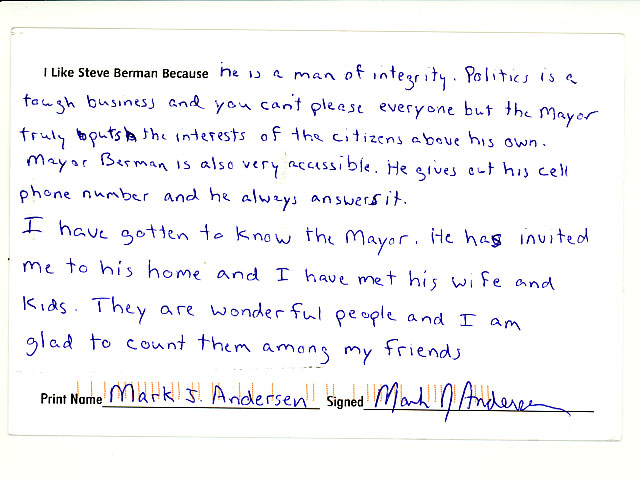 I Like Steve Berman Because he is a man of integrity. Politics is a
tough business and you can't please everyone but the Mayor
truly puts the interests of the citizens above his own.
Mayor Berman is also very accissible. He gives out his cell
phone number and he always answers it.
I have gotten to know the Mayor. He has invited
me to his home and I have met his wife and
kids. They are wonderful people and I am
glad to count them among my friends
Print Name Mark J. Andersen Signed Mark J Andersen